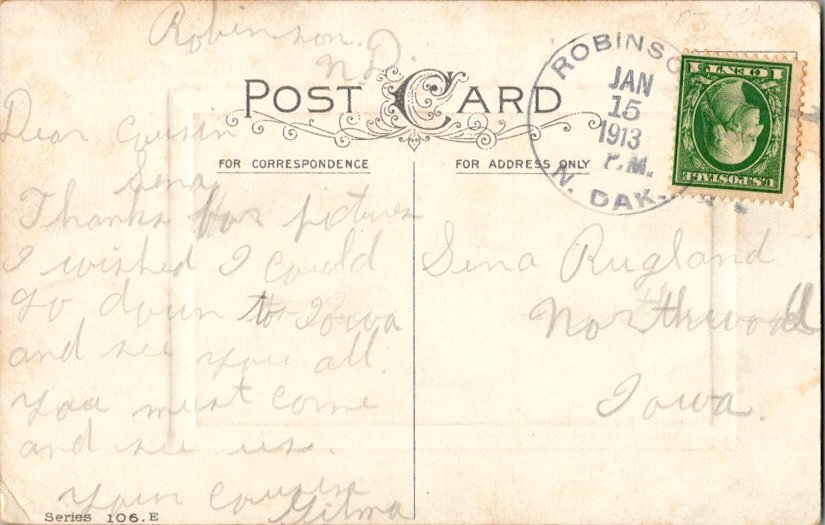 Robinson.
N.D.
POST CARD
FOR CORRESPONDENCE
FOR ADDRESS ONLY
ROBINSO
JAN
15
1913
P.M.
N. DAK.
1 CENT 1
U.S. POSTAGE
Dear Cousin
Sena
Thanks for pictures
I wished I could
go down to Iowa
and see you all.
You must come
and see us.
Your cousin
Gilma
Sena Rugland
Northwood
Iowa.
Series 106.E